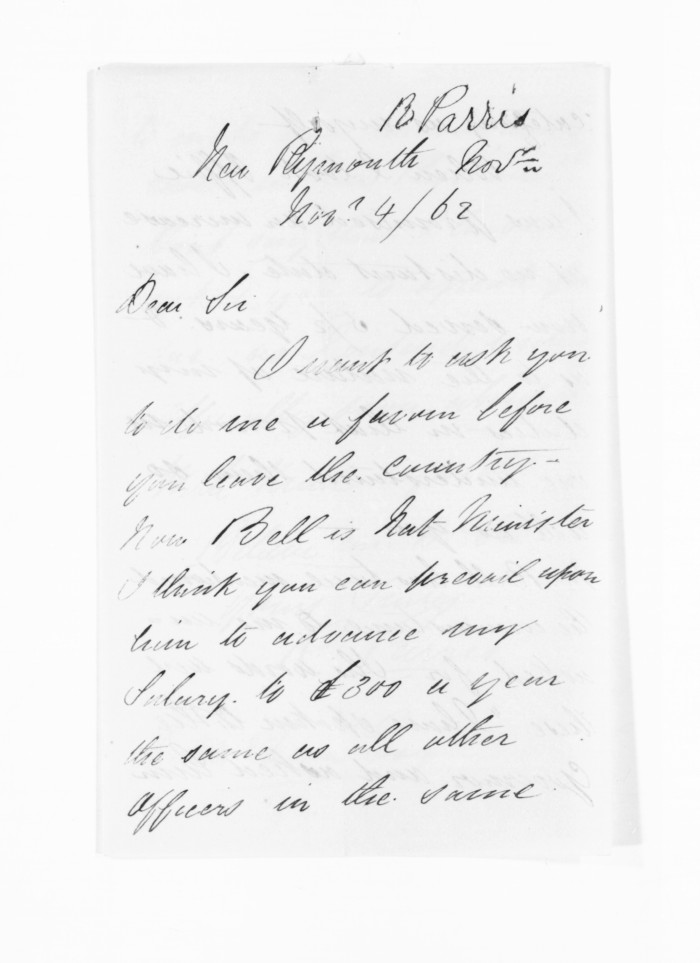 R Parris
New Plymouth
Novr 4/62
Dear Sir
I want to ask you
to do me a favour before
you leave the country -
Now Bell is Nat Minister
I think you can prevail upon
him to advance my
Salary. to £300 a year
the same as all other
officers in the same